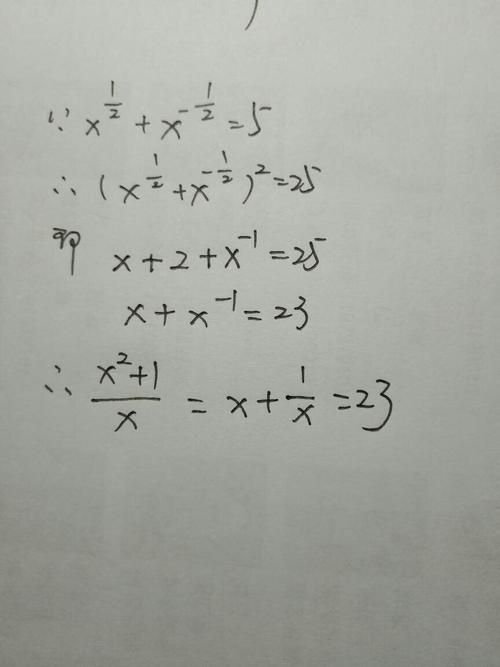 ∵ x^{\frac{1}{2}} + x^{-\frac{1}{2}} = 5
∴ (x^{\frac{1}{2}} + x^{-\frac{1}{2}})^2 = 25
即 x + 2 + x^{-1} = 25
x + x^{-1} = 23
∴ \frac{x^2+1}{x} = x + \frac{1}{x} = 23